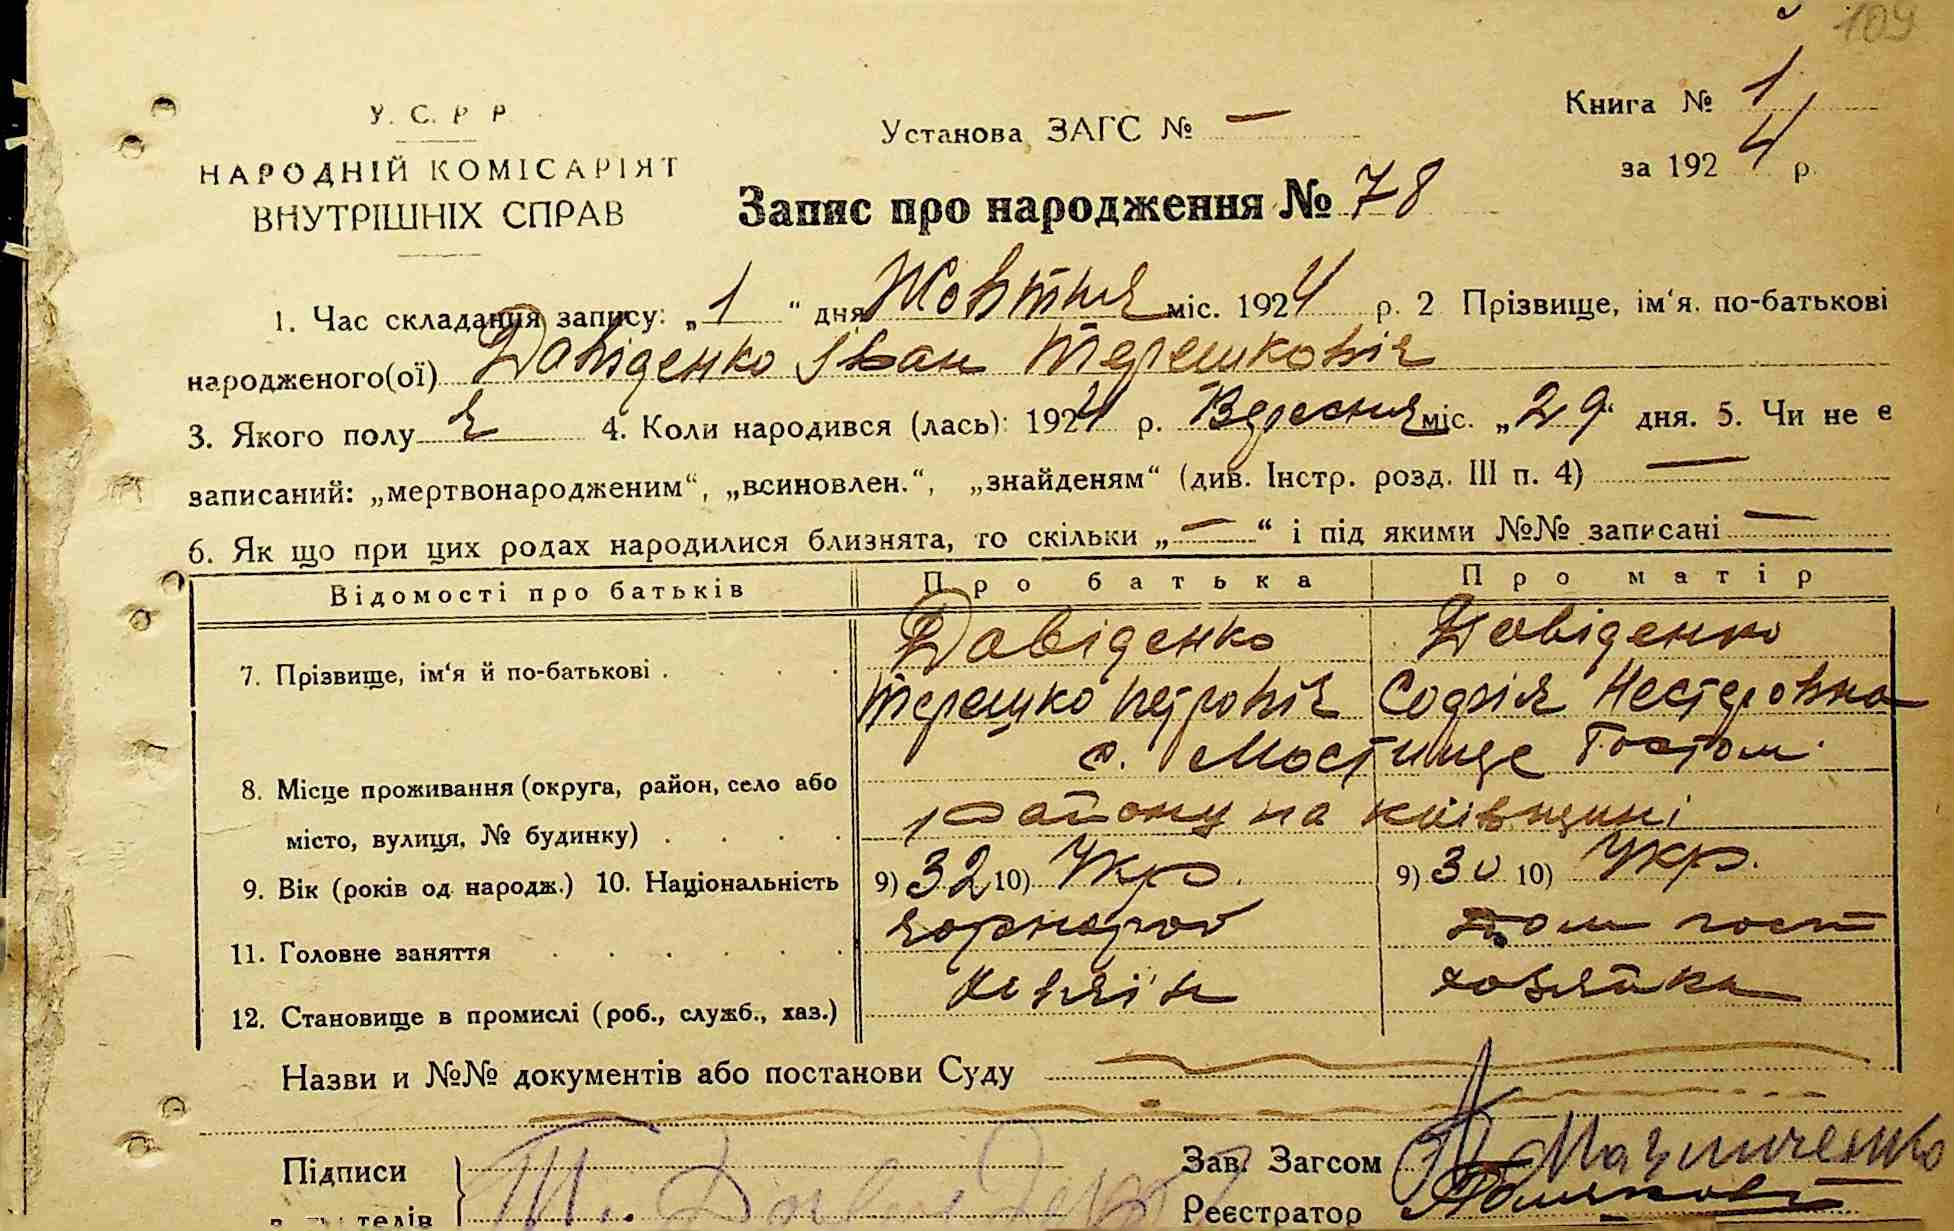 109
У. С. Р Р
Установа ЗАГС № —
Книга № 1
за 1924 р.
НАРОДНІЙ КОМІСАРІЯТ
ВНУТРІШНІХ СПРАВ
Запис про народження № 78
1. Час складання запису: „1“ дня Жовтня міс. 1924 р. 2 Прізвище, ім'я, по-батькові
народженого(ої) Давіденко Іван Терешковіч
3. Якого полу Ч 4. Коли народився (лась): 1924 р. Вересня міс. „29“ дня. 5. Чи не є
записаний: „мертвонародженим“, „всиновлен.“, „знайденям“ (див. Інстр. розд. III п. 4) —
6. Як що при цих родах народилися близнята, то скільки „—“ і під якими №№ записані —
Відомості про батьків Про батька Про матір
7. Прізвище, ім'я й по-батькові . . . . Давіденко Давіденко
Терешко Петровіч Софія Нестеровна
с. Мостище Гостом.
8. Місце проживання (округа, район, село або
місто, вулиця, № будинку) . . . . району на Київщині
9. Вік (років од народж.) 10. Національність 9) 32 10) Укр. 9) 30 10) Укр.
11. Головне заняття . . . . . . чорнороб Дом госп
12. Становище в промислі (роб., служб., хаз.) хозяйка
Назви и №№ документів або постанови Суду
Підписи Т. Зав. Загсом
Реєстратор